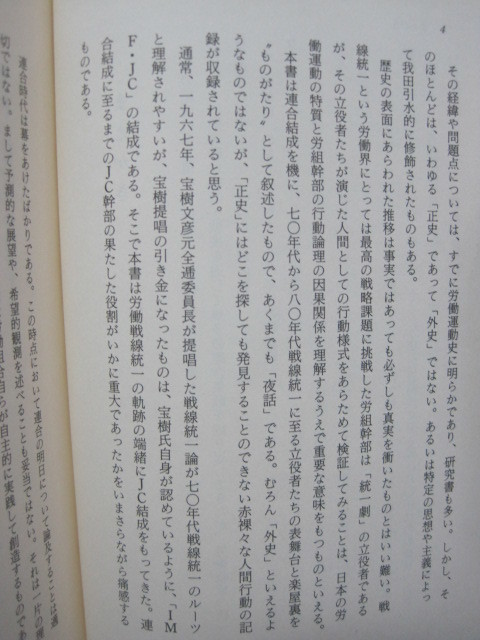 4
その経緯や問題点については、すでに労働運動史に明らかであり、研究書も多い。しかし、そ
のほとんどは、いわゆる「正史」であって「外史」ではない。あるいは特定の思想や主義によっ
て我田引水的に修飾されたものもある。
歴史の表面にあらわれた推移は事実ではあっても必ずしも真実を衝いたものとはいい難い。戦
線統一という労働界にとっては最高の戦略課題に挑戦した労組幹部は「統一劇」の立役者である
が、その立役者たちが演じた人間としての行動様式をあらためて検証してみることは、日本の労
働運動の特質と労組幹部の行動論理の因果関係を理解するうえで重要な意味をもつものといえる。
本書は連合結成を機に、七〇年代から八〇年代戦線統一に至る立役者たちの表舞台と楽屋裏を
〝ものがたり〟として叙述したもので、あくまでも「夜話」である。むろん「外史」といえるよ
うなものではないが、「正史」にはどこを探しても発見することのできない赤裸々な人間行動の記
録が収録されていると思う。
通常、一九六七年、宝樹文彦元全逓委員長が提唱した戦線統一論が七〇年代戦線統一のルーツ
と理解されやすいが、宝樹提唱の引き金になったものは、宝樹氏自身が認めているように、「IM
F・JC」の結成である。そこで本書は労働戦線統一の軌跡の端緒にJC結成をもってきた。連
合結成に至るまでのJC幹部の果たした役割がいかに重大であったかをいまさらながら痛感する
ものである。
連合時代は幕をあけたばかりである。この時点において連合の明日について論及することは適
切ではない。まして予測的な展望や、希望的観測を述べることも妥当ではない。それは一片の
労働組合自らが自主的に実践して創造するものであ